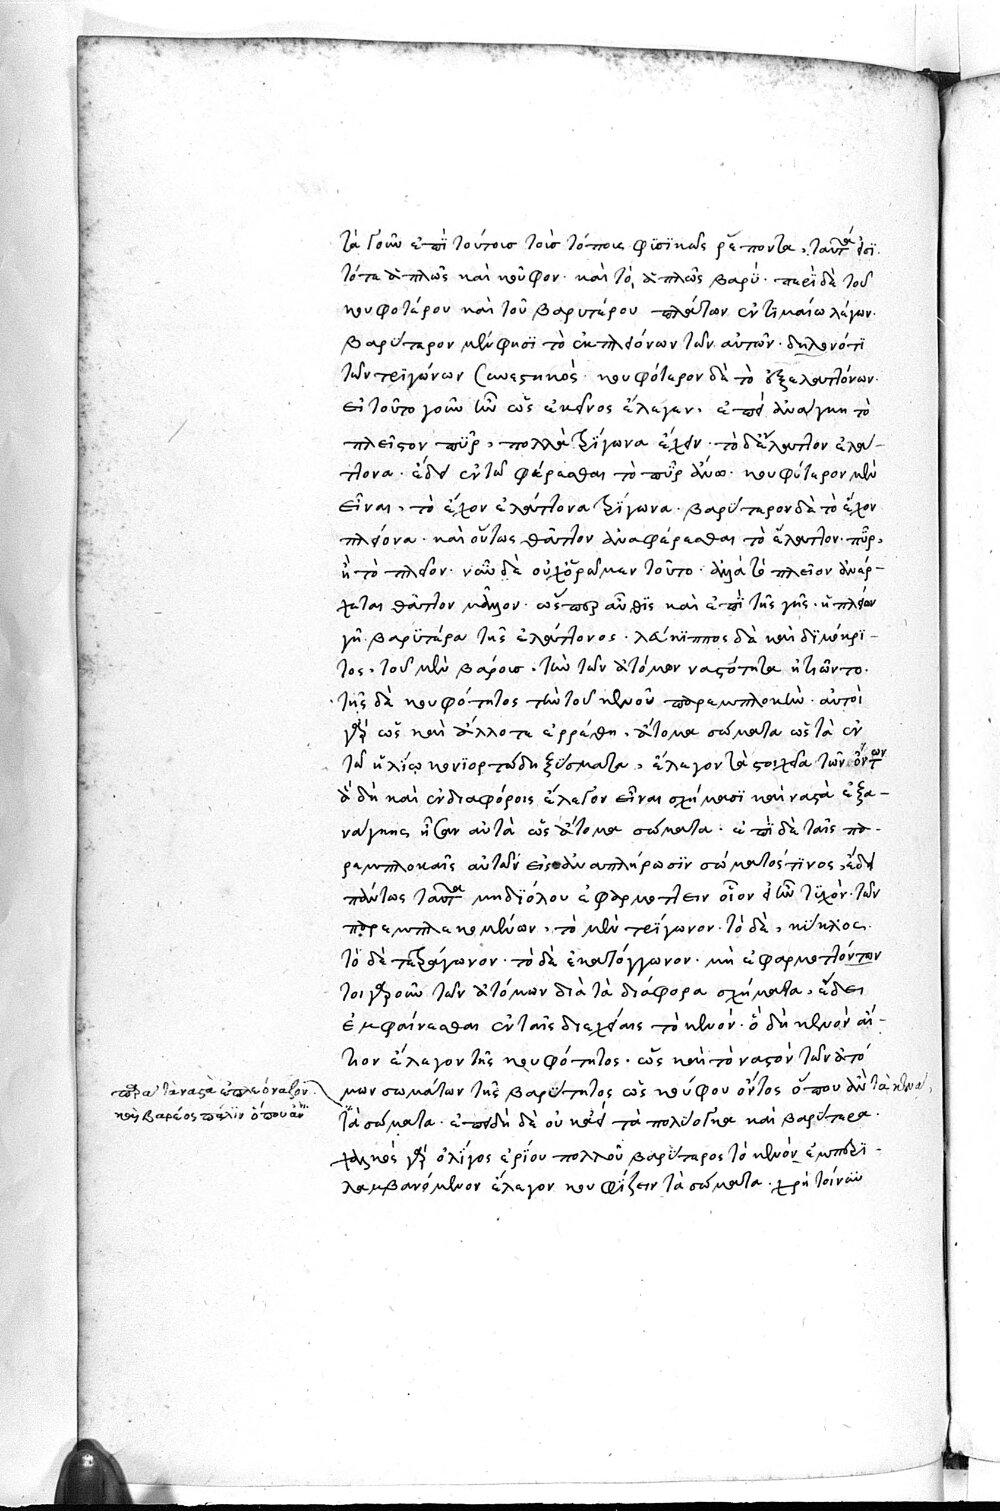 τὰ γοῦν ἐπὶ τούτοις τοῖς τόποις φϋσϊκῶς ῥέποντα, ταῦτά ἐσϊ
τό τε ἁπλῶς καὶ κοῦφον· καὶ τὸ ἁπλῶς βαρϋ· περὶ δὲ τοῦ
κουφοτέρου καὶ τοῦ βαρυτέρου πλάτων ἐν τιμαίω λέγων·
βαρύτερον μὲν φησὶ τὸ ἐκ πλειόνων τῶν αὐτῶν· δηλονότι
τῶν τριγώνων συνεστηκός· κουφότερον δὲ τὸ ἐξ ἐλαττόνων·
εἰ τοῦτο γοῦν ἦν ὡς ἐκεῖνος ἔλεγεν, ἐπεὶ ἀνάγκη τὸ
πλεῖστον πῦρ, πολλὰ τρίγωνα ἔχειν· τὸ δ' ἔλαττον ἐλάτ-
τονα· ἔδει ἐν τῶ φέρεσθαι τὸ πῦρ ἄνω· κουφότερον μὲν
εἶναι, τὸ ἔχον ἐλάττονα τρίγωνα· βαρύτερον δὲ τὸ ἔχον
πλείονα· καὶ οὕτως θᾶττον ἀναφέρεσθαι τὸ ἔλαττον πῦρ,
ἢ τὸ πλεῖον· νῦν δὲ οὐχ ὁρῶμεν τοῦτο· ἀλλὰ τὸ πλεῖον ἀνέρ-
χεται θᾶττον μᾶλλον· ὥσπερ αὖθις καὶ ἐπὶ τῆς γῆς· ἡ πλείων
γῆ βαρϋτέρα τῆς ἐλάττονος· λεύκιππος δὲ καὶ δϊμόκρι-
τος, τοῦ μὲν βάρους, τὴν τῶν ἀτόμων ναστότητα ἠτιῶντο·
τῆς δὲ κουφότητος τὴν τοῦ κενοῦ παρεμπλοκὴν· αὐτοὶ
γὰρ ὡς καὶ ἄλλοτε ἐρρέθη, ἄτομα σώματα ὡς τὰ ἐν
τῶ ἡλίῳ κονϊορτώδη ξύσματα, ἔλεγον τὰ στοιχεῖα τῶν ὄντων
ἃ δὴ καὶ ἐν διαφόροις ἔλεγον εἶναι σχήμασϊ καὶ ναστὰ ἐξ ἀ-
νάγκης ἦσαν αὐτὰ ὡς ἄτομα σώματα· ἐπεὶ δὲ ταῖς πα-
ρεμπλοκαῖς αὐτῶν εἰς ἀναπλήρωσϊν σώματός τϊνος, ἔδει
πάντως ταῦτα μηδϊόλου ἐφαρμόττειν οἷον εἰ ἦν τϋχὸν· τῶν
παρεμπλεκομένων, τὸ μὲν τρϊγωνον· τὸ δὲ, κύκλος·
τὸ δὲ τετράγωνον· τὸ δὲ ἑκατόγγωνον· μὴ ἐφαρμοττόντων
τοιγαροῦν τῶν ἀτόμων διὰ τὰ διάφορα σχήματα, ἔδει
ἐμφαίνεσθαι ἐν ταῖς διεχείαις τὸ κενόν· ὃ δὴ κενὸν αἴ-
τιον ἔλεγον τῆς κουφότητος· ὡς καὶ τὸ ναστὸν τῶν ἀτό
μων σωμάτων τῆς βαρϋτητος ὡς κούφου ὄντος ὅπου ἂν τὰ κενὰ,
παρὰ τὰ ναστὰ ἐπλεόναζον·
καὶ βαρέος πάλϊν ὅπου ἂν
τὰ σώματα· ἐπειδὴ δὲ οὐ καὶ τὰ πολϋογκα καὶ βαρύτερα·
χαλκὸς γὰρ ὀλίγος ἐρίου πολλοῦ βαρϋτερος τὸ κενὸν ἐμπερϊ-
λαμβανόμενον ἔλεγον κουφίζειν τὰ σώματα· χρὴ τοίνυν